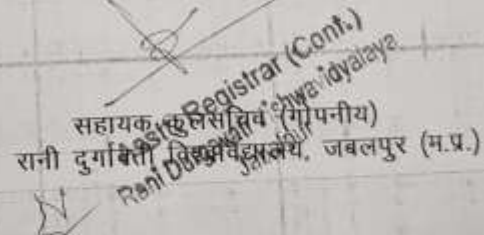 Asstt. Registrar (Conf.)
Rani Durgavati Vishwavidyalaya
Jabalpur
सहायक कुलसचिव (गोपनीय)
रानी दुर्गावती विश्वविद्यालय, जबलपुर (म.प्र.)